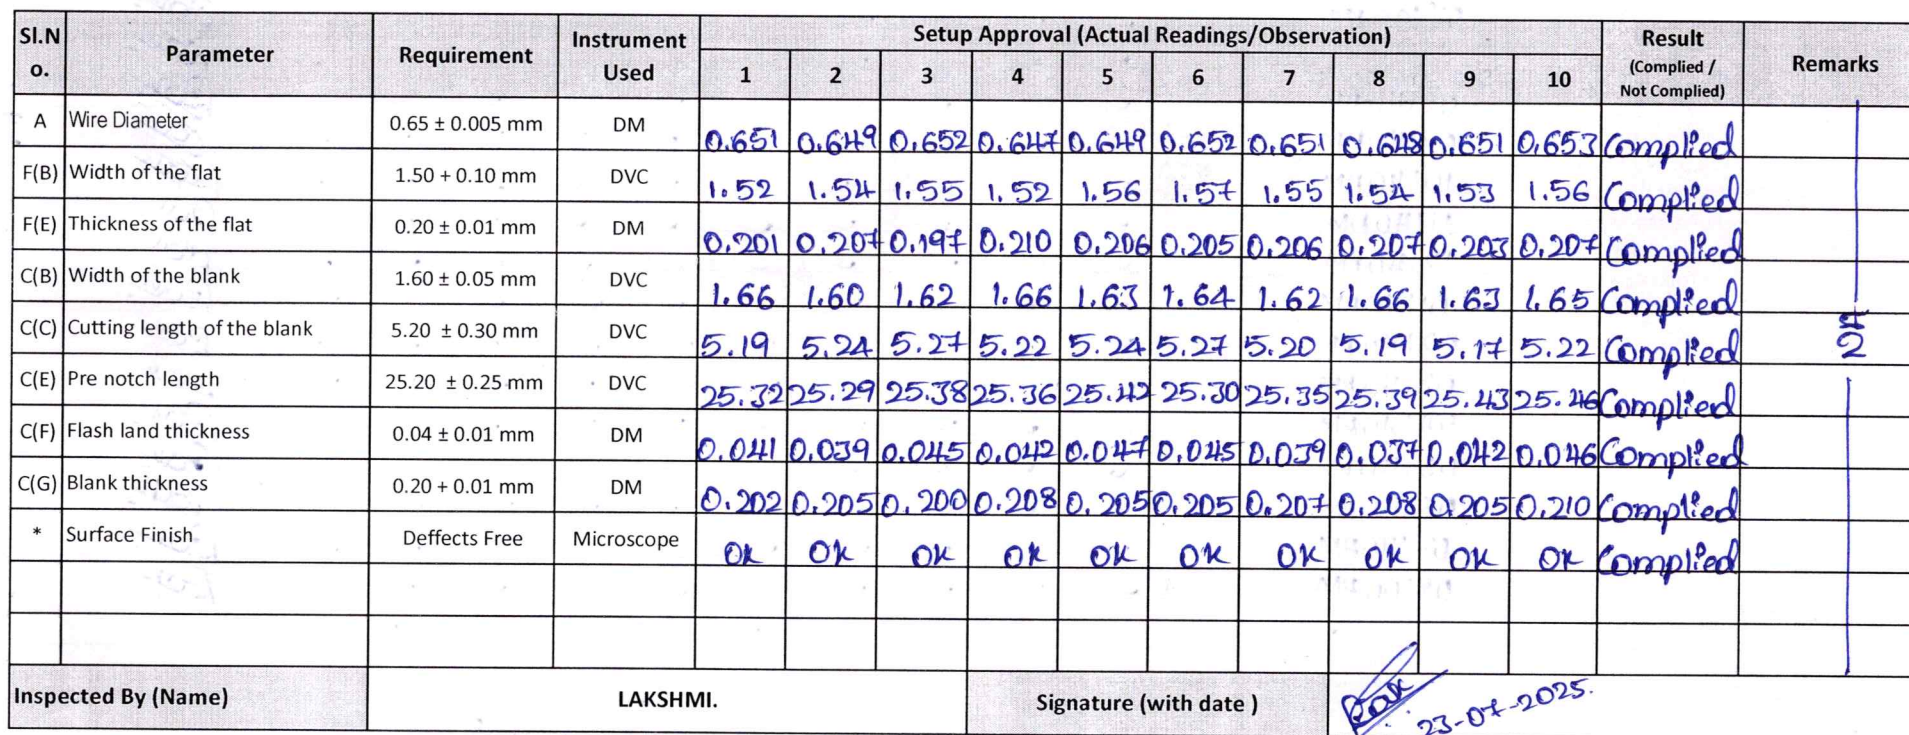 Sl.No. Parameter Requirement Instrument Used Setup Approval (Actual Readings/Observation) Result (Complied / Not Complied) Remarks
1 2 3 4 5 6 7 8 9 10
A Wire Diameter 0.65 ± 0.005 mm DM 0.651 0.649 0.652 0.647 0.649 0.652 0.651 0.648 0.651 0.653 Complied
F(B) Width of the flat 1.50 + 0.10 mm DVC 1.52 1.54 1.55 1.52 1.56 1.57 1.55 1.54 1.53 1.56 Complied
F(E) Thickness of the flat 0.20 ± 0.01 mm DM 0.201 0.207 0.197 0.210 0.206 0.205 0.206 0.207 0.203 0.207 Complied
C(B) Width of the blank 1.60 ± 0.05 mm DVC 1.66 1.60 1.62 1.66 1.63 1.64 1.62 1.66 1.63 1.65 Complied
C(C) Cutting length of the blank 5.20 ± 0.30 mm DVC 5.19 5.24 5.27 5.22 5.24 5.27 5.20 5.19 5.17 5.22 Complied
C(E) Pre notch length 25.20 ± 0.25 mm DVC 25.32 25.29 25.38 25.36 25.42 25.30 25.35 25.39 25.43 25.46 Complied
C(F) Flash land thickness 0.04 ± 0.01 mm DM 0.041 0.039 0.045 0.042 0.047 0.045 0.039 0.037 0.042 0.046 Complied
C(G) Blank thickness 0.20 + 0.01 mm DM 0.202 0.205 0.200 0.208 0.205 0.205 0.207 0.208 0.205 0.210 Complied
* Surface Finish Deffects Free Microscope OK OK OK OK OK OK OK OK OK OK Complied
Inspected By (Name) LAKSHMI. Signature (with date ) 23-07-2025.